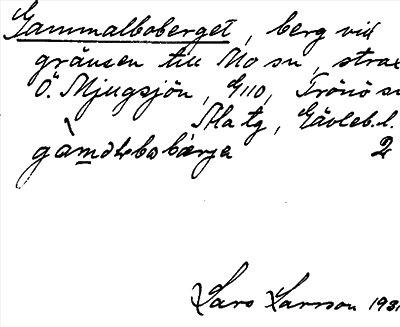 Gammalboberget, berg vid
gränsen till Mo sn, strax
Ö. Mjugsjön, G110, Trönö sn
Ala tg, Gävleb. l.
2
Lars Larsson 193